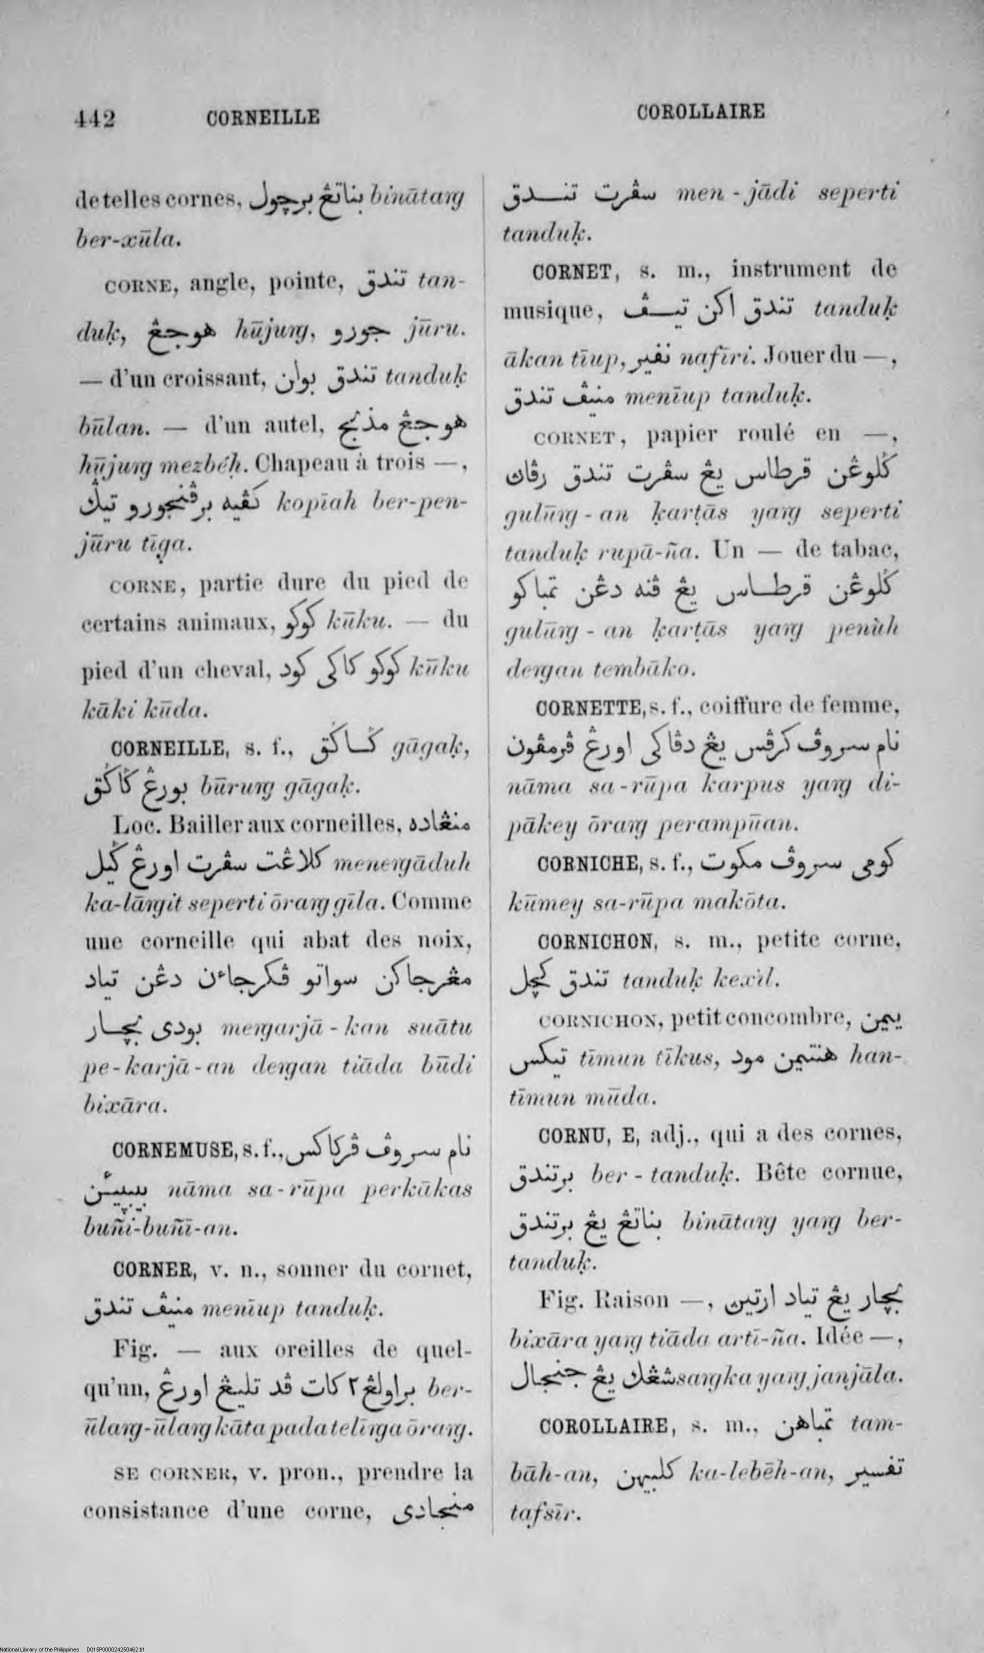 442 CORNEILLE COROLLAIRE
de telles cornes, بناتڠ برچول binātaŋ
ber-xūla.
CORNE, angle, pointe, تندق tan-
duḳ, هوجڠ hūjuŋ, جورو jūru.
— d'un croissant, تندق بولن tanduḳ
būlan. — d'un autel, هوجڠ مذبح
hūjuŋ mezbéḥ. Chapeau à trois —,
کڤيه برڤنجورو تيݢ kopīah ber-pen-
jūru tīga.
CORNE, partie dure du pied de
certains animaux, کوکو kūku. — du
pied d'un cheval, کوکو کاکي کود kūku
kāki kūda.
CORNEILLE, s. f., ݢاݢق gāgaḳ,
بورڠ ݢاݢق būruŋ gāgaḳ.
Loc. Bailler aux corneilles, منڠاده
کلاڠت سڤرت اورڠ ݢيل meneŋāduh
ka-lāŋit seperti ōraŋ gīla. Comme
une corneille qui abat des noix,
مڠرجاکن سواتو ڤکرجاءن دڠن تياد
بودي بچار meŋarjā-kan suātu
pe-karjā-an deŋan tiāda būdi
bixāra.
CORNEMUSE, s. f., نام سروڤ ڤرکاکس
nāma sa-rūpa perkākas
buñi-buñī-an.
CORNER, v. n., sonner du cornet,
منيڤ تندق menīup tanduḳ.
Fig. — aux oreilles de quel-
qu'un, براولڠ٢ کات ڤد تليڠ اورڠ ber-
ūlaŋ-ūlaŋ kāta pada telīŋa ōraŋ.
SE CORNER, v. pron., prendre la
consistance d'une corne, منجادي
سڤرت تندق men-jādi seperti
tanduḳ.
CORNET, s. m., instrument de
musique, تندق اکن تيڤ tanduḳ
ākan tīup, نفير nafīri. Jouer du —,
منيڤ تندق menīup tanduḳ.
CORNET, papier roulé en —,
ݢلوڠن قرطاس يڠ سڤرت تندق رڤاڽ
gulūŋ-an ḳarṭās yaŋ seperti
tanduḳ rupā-ña. Un — de tabac,
ݢلوڠن قرطاس يڠ ڤنه دڠن تمباکو
gulūŋ-an ḳarṭās yaŋ penùh
deŋan tembāko.
CORNETTE, s. f., coiffure de femme,
نام سروڤ کرڤس يڠ دڤاکي اورڠ ڤرمڤون
nāma sa-rūpa karpus yaŋ di-
pākey ōraŋ perampūan.
CORNICHE, s. f., کومي سروڤ مکوت
kūmey sa-rūpa makōta.
CORNICHON, s. m., petite corne,
تندق کچل tanduḳ kexìl.
CORNICHON, petit concombre, تيمن
تيکس tīmun tīkus, هنتيمن مود han-
tīmun mūda.
CORNU, E, adj., qui a des cornes,
برتندق ber-tanduḳ. Bête cornue,
بناتڠ يڠ برتندق binātaŋ yaŋ ber-
tanduḳ.
Fig. Raison —, بچار يڠ تياد ارتيڽ
bixāra yaŋ tiāda artī-ña. Idée —,
شڠک يڠ جنجال saŋka yaŋ janjāla.
COROLLAIRE, s. m., تمباهن tam-
bāh-an, کلبيهن ka-lebēh-an, تفسير
tafsīr.
National Library of the Philippines